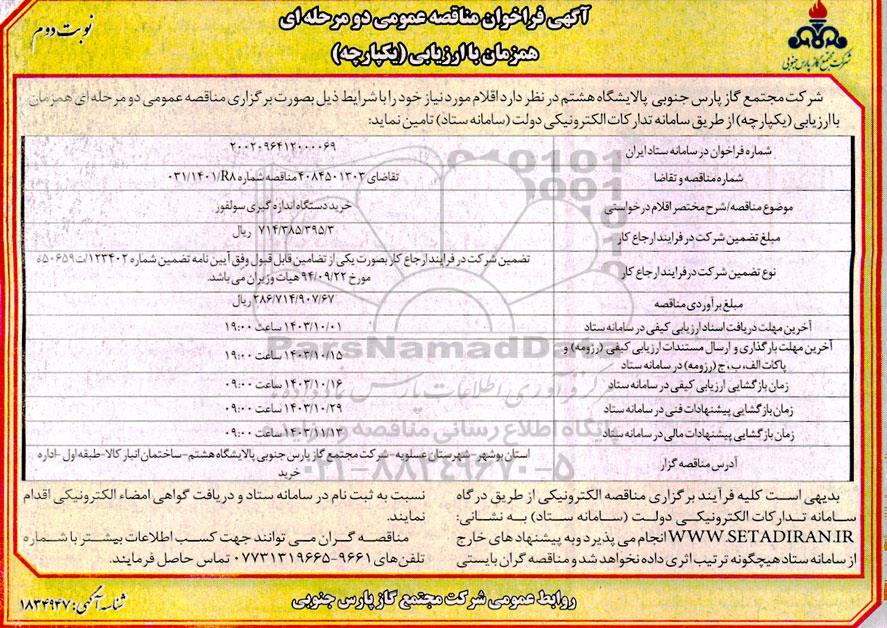 آگهی فراخوان مناقصه عمومی دو مرحله ای
همزمان با ارزیابی (یکپارچه)
نوبت دوم
شرکت مجتمع گاز پارس جنوبی
شرکت مجتمع گاز پارس جنوبی پالایشگاه هشتم در نظر دارد اقلام مورد نیاز خود را با شرایط ذیل بصورت برگزاری مناقصه عمومی دو مرحله ای همزمان
با ارزیابی (یکپارچه) از طریق سامانه تدارکات الکترونیکی دولت (سامانه ستاد) تامین نماید:
شماره فراخوان در سامانه ستاد ایران ۲۰۰۲۰۹۶۴۱۲۰۰۰۰۶۹
شماره مناقصه و تقاضا تقاضای ۴۰۸۴۵۰۱۳۰۳ مناقصه شماره ۰۳۱/۱۴۰۱/R۸
موضوع مناقصه/شرح مختصر اقلام درخواستی خرید دستگاه اندازه گیری سولفور
مبلغ تضمین شرکت در فرایند ارجاع کار ۷۱۴/۳۸۵/۳۹۵/۳ ریال
نوع تضمین شرکت در فرایند ارجاع کار تضمین شرکت در فرایند ارجاع کار بصورت یکی از تضامین قابل قبول وفق آیین نامه تضمین شماره ۱۲۳۴۰۲/ت۵۰۶۵۹ه
مورخ ۹۴/۰۹/۲۲ هیات وزیران می باشد.
مبلغ برآوردی مناقصه ۲۸۶/۷۱۴/۹۰۷/۶۷ ریال
آخرین مهلت دریافت اسناد ارزیابی کیفی در سامانه ستاد ۱۴۰۳/۱۰/۰۱ ساعت ۱۹:۰۰
آخرین مهلت بارگذاری و ارسال مستندات ارزیابی کیفی (رزومه) و
پاکات الف، ب، ج (رزومه) در سامانه ستاد ۱۴۰۳/۱۰/۱۵ ساعت ۱۹:۰۰
زمان بازگشایی ارزیابی کیفی در سامانه ستاد ۱۴۰۳/۱۰/۱۶ ساعت ۰۹:۰۰
زمان بازگشایی پیشنهادات فنی در سامانه ستاد ۱۴۰۳/۱۰/۲۹ ساعت ۰۹:۰۰
زمان بازگشایی پیشنهادات مالی در سامانه ستاد ۱۴۰۳/۱۱/۱۳ ساعت ۰۹:۰۰
آدرس مناقصه گزار استان بوشهر - شهرستان عسلویه - شرکت مجتمع گاز پارس جنوبی پالایشگاه هشتم - ساختمان انبار کالا - طبقه اول - اداره
خرید
ParsNamadData
گرداوری اطلاعات پارس نماد داده ها
پایگاه اطلاع رسانی مناقصه و مزایده
۰۲۱-۸۸۳۴۹۶۷۰-۵
بدیهی است کلیه فرآیند برگزاری مناقصه الکترونیکی از طریق درگاه
سامانه تدارکات الکترونیکی دولت (سامانه ستاد) به نشانی:
WWW.SETADIRAN.IR انجام می پذیرد و به پیشنهاد های خارج
از سامانه ستاد هیچگونه ترتیب اثری داده نخواهد شد و مناقصه گران بایستی
نسبت به ثبت نام در سامانه ستاد و دریافت گواهی امضاء الکترونیکی اقدام
نمایند.
مناقصه گران می توانند جهت کسب اطلاعات بیشتر با شماره
تلفن های ۹۶۶۱-۰۷۷۳۱۳۱۹۶۶۵ تماس حاصل فرمایند.
روابط عمومی شرکت مجتمع گاز پارس جنوبی
شناسه آگهی: ۱۸۳۴۹۴۷